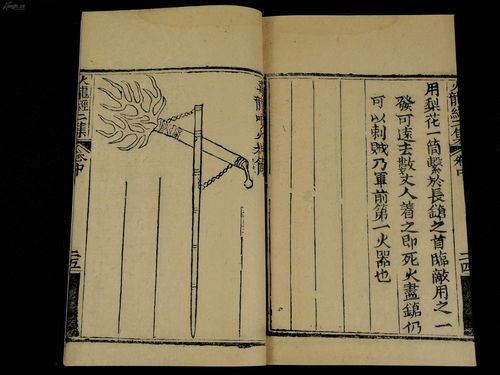 火龍經二集
卷中
二四
用梨花一筒繫於長鎗之首臨敵用之一
發可遠去數丈人着之即死火盡鎗仍
可以刺賊乃軍前第一火器也
火龍經二集
卷中
二五